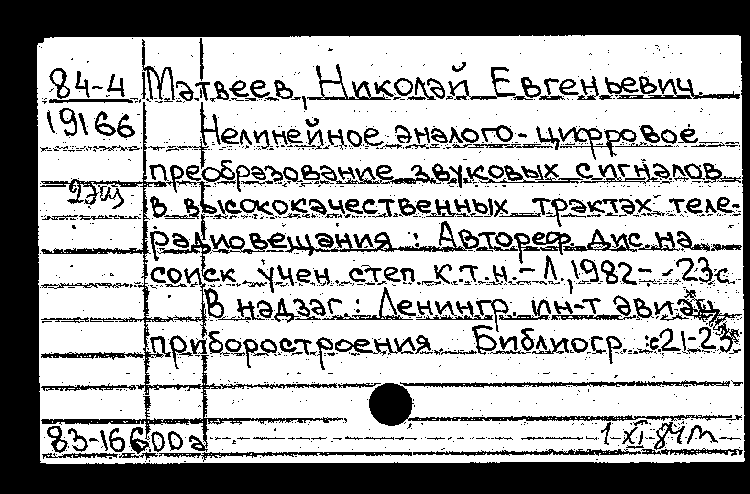 84-4 Матвеев, Николай Евгеньевич
19166 Нелинейное аналого-цифровое
преобразование звуковых сигналов
2 экз в высококачественных трактах теле-
радиовещания : Автореф дис на
соиск учен степ к.т.н.-Л, 1982--23с
В надзаг.: Ленингр. ин-т авиац
приборостроения Библиогр :с21-23
83-16600а 1 XI 84